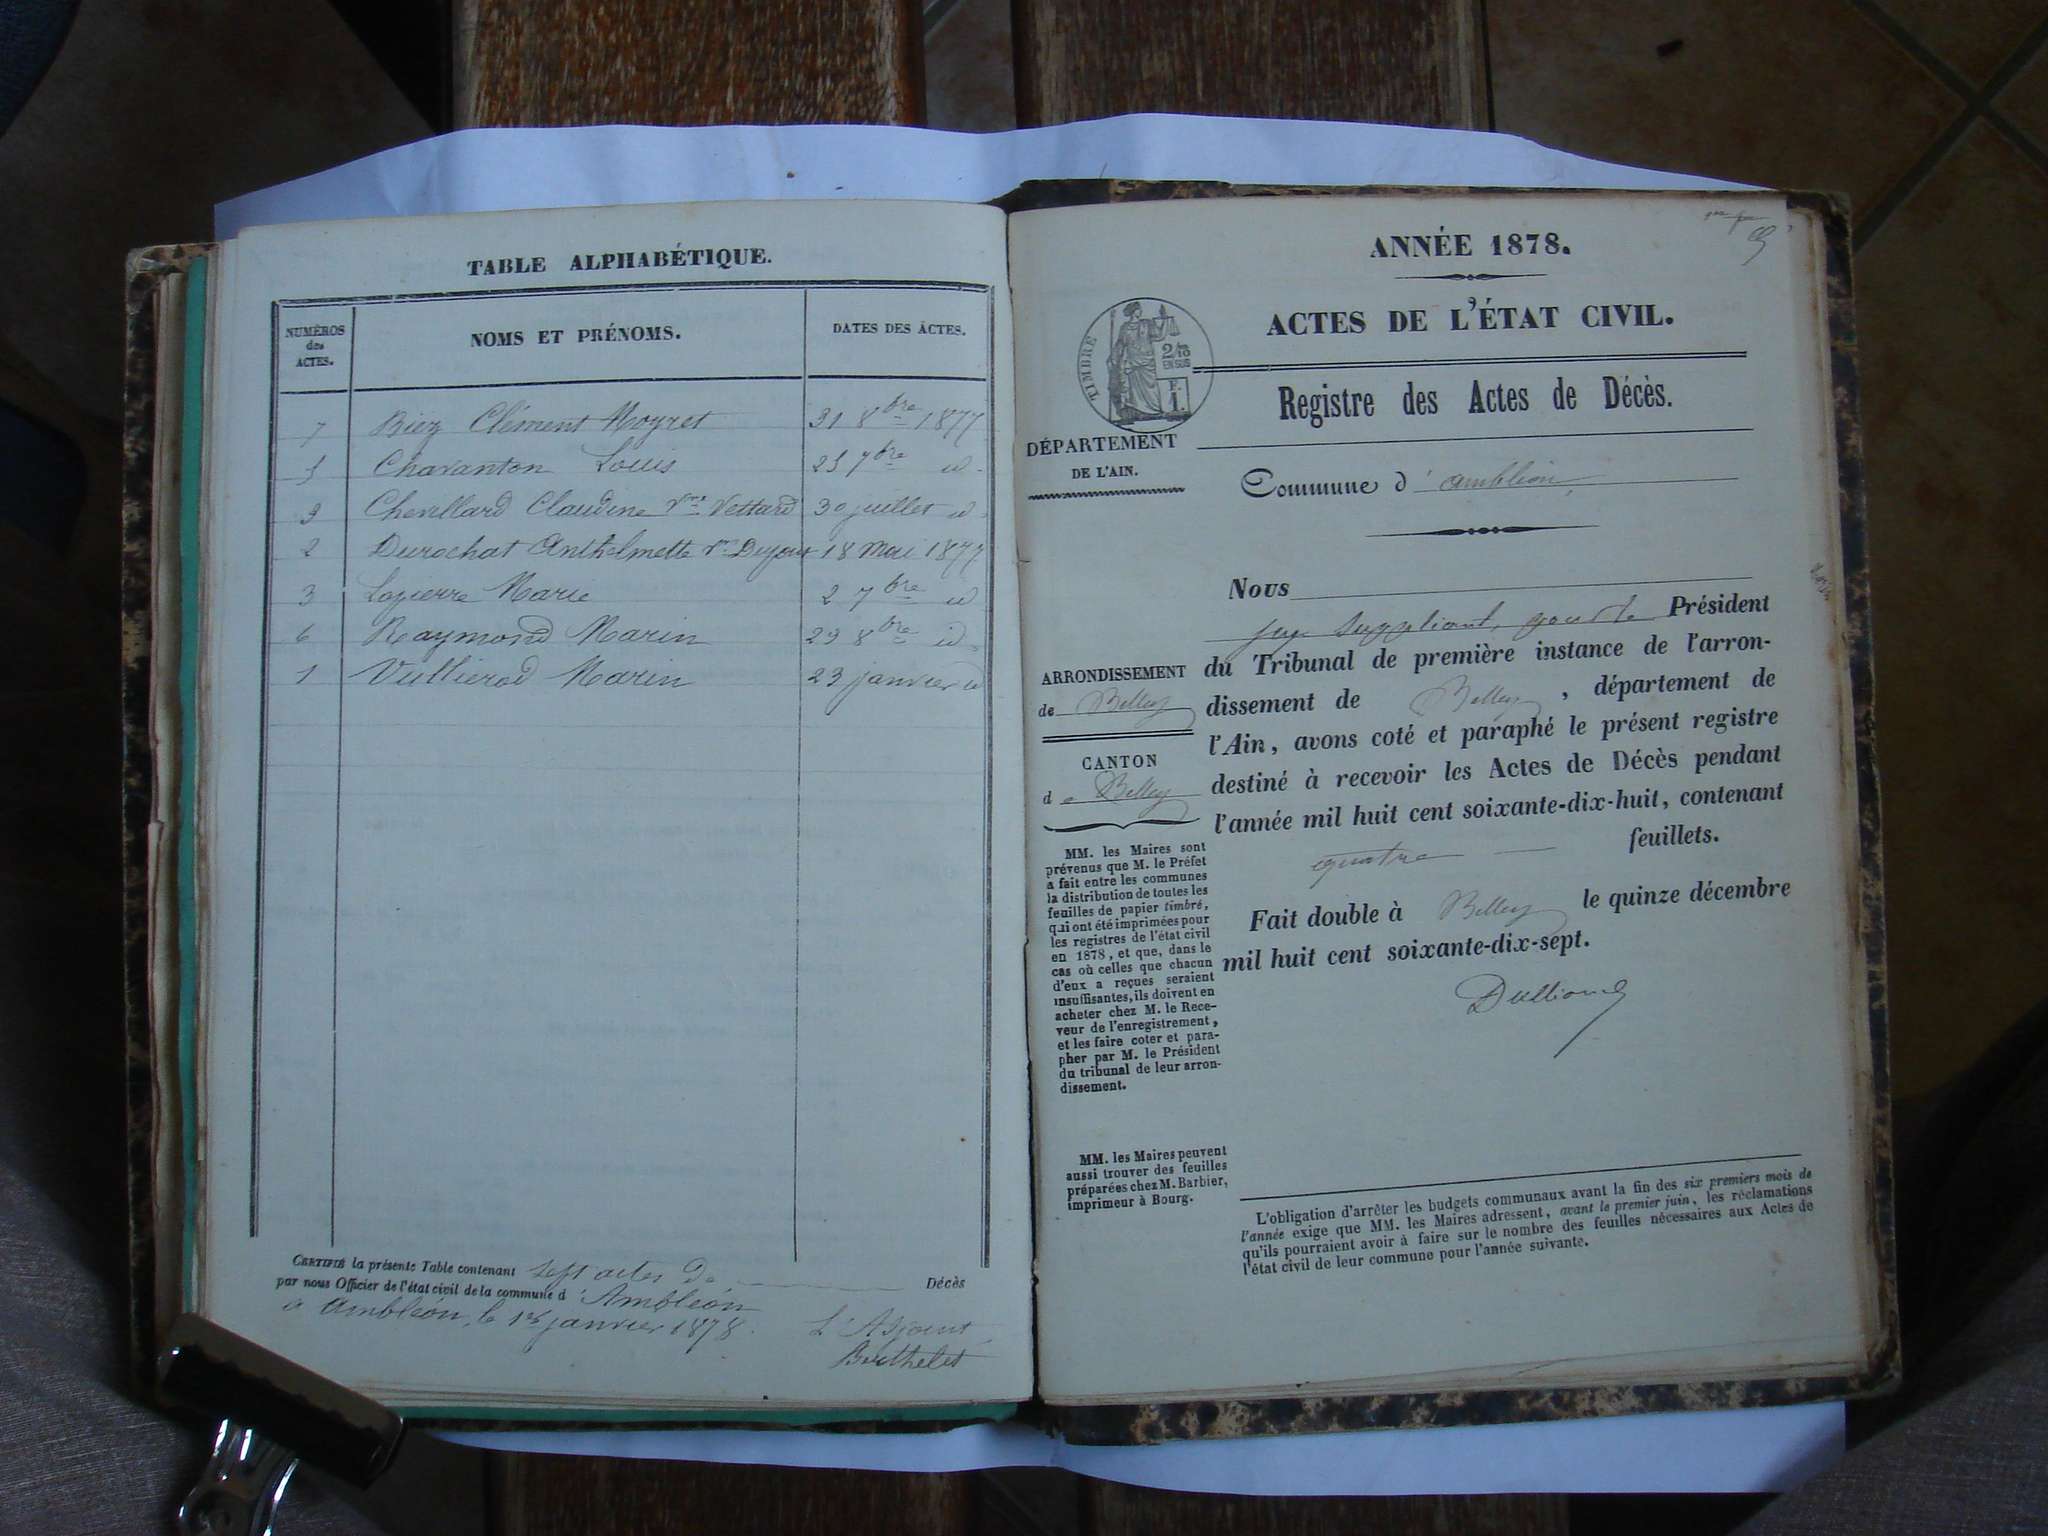 TABLE ALPHABÉTIQUE.
NUMÉROS
des
ACTES.
NOMS ET PRÉNOMS.
DATES DES ACTES.
7 Biez Clément Moyret 31 8bre 1877
5 Chavanton Louis 25 7bre id
Chevillard Claudine Vve Vettard 30 juillet id
2 Durochat Anthelmette Vve 18 Mai 1877
3 Lapierre Marie 2 7bre id
6 Raymond Marin 29 8bre id
1 Vullierod Marin 23 janvier id
CERTIFIÉ la présente Table contenant sept actes de Décès
par nous Officier de l'état civil de la commune d'Ambléon
à Ambléon, le 1er janvier 1878.
L'Adjoint
Berthelet
ANNÉE 1878.
ACTES DE L'ÉTAT CIVIL.
TIMBRE
2/10
EN SUS
F.
1.
Registre des Actes de Décès.
DÉPARTEMENT
DE L'AIN.
Commune d'ambléon
Nous
juge suppléant, pour le Président
du Tribunal de première instance de l'arron-
dissement de Belley, département de
l'Ain, avons coté et paraphé le présent registre
destiné à recevoir les Actes de Décès pendant
l'année mil huit cent soixante-dix-huit, contenant
quatre feuillets.
Fait double à Belley le quinze décembre
mil huit cent soixante-dix-sept.
ARRONDISSEMENT
de Belley
CANTON
de Belley
MM. les Maires sont
prévenus que M. le Préfet
a fait entre les communes
la distribution de toutes les
feuilles de papier timbré,
qui ont été imprimées pour
les registres de l'état civil
en 1878, et que, dans le
cas où celles que chacun
d'eux a reçues seraient
insuffisantes, ils doivent en
acheter chez M. le Rece-
veur de l'enregistrement,
et les faire coter et para-
pher par M. le Président
du tribunal de leur arron-
dissement.
MM. les Maires peuvent
aussi trouver des feuilles
préparées chez M. Barbier,
imprimeur à Bourg.
L'obligation d'arrêter les budgets communaux avant la fin des six premiers mois de
l'année exige que MM. les Maires adressent, avant le premier juin, les réclamations
qu'ils pourraient avoir à faire sur le nombre des feuilles nécessaires aux Actes de
l'état civil de leur commune pour l'année suivante.